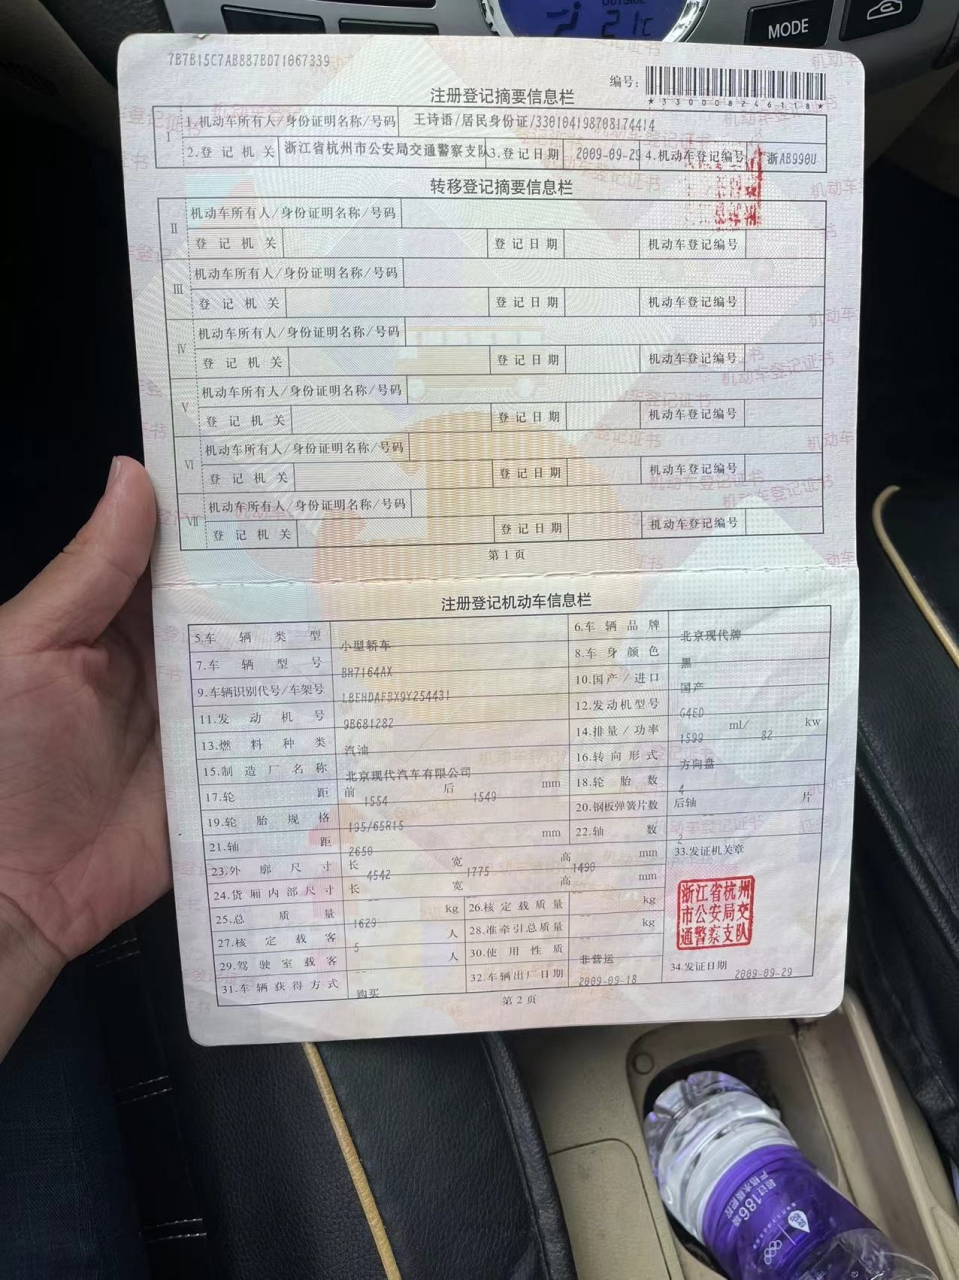 OUTSIDE
21℃
MODE
7B7B15C7AB887BD71067339
编号:
*330008246118*
注册登记摘要信息栏
I 1.机动车所有人/身份证明名称/号码 王诗语/居民身份证/330104198708174414
2.登记机关 浙江省杭州市公安局交通警察支队 3.登记日期 2009-09-29 4.机动车登记编号 浙AB990U
转移登记摘要信息栏
II 机动车所有人/身份证明名称/号码
登记机关 登记日期 机动车登记编号
III 机动车所有人/身份证明名称/号码
登记机关 登记日期 机动车登记编号
IV 机动车所有人/身份证明名称/号码
登记机关 登记日期 机动车登记编号
V 机动车所有人/身份证明名称/号码
登记机关 登记日期 机动车登记编号
VI 机动车所有人/身份证明名称/号码
登记机关 登记日期 机动车登记编号
VII 机动车所有人/身份证明名称/号码
登记机关 登记日期 机动车登记编号
第1页
注册登记机动车信息栏
5.车辆类型 小型轿车 6.车辆品牌 北京现代牌
7.车辆型号 BH7164AX 8.车身颜色 黑
9.车辆识别代号/车架号 LBEHDAFBX9Y254431 10.国产/进口 国产
11.发动机号 9B681282 12.发动机型号 G4ED
13.燃料种类 汽油 14.排量/功率 1599 ml/ 82 kw
15.制造厂名称 北京现代汽车有限公司 16.转向形式 方向盘
17.轮距 前 1554 后 1549 mm 18.轮胎数 4
19.轮胎规格 195/65R15 20.钢板弹簧片数 后轴 片
21.轴距 2650 mm 22.轴数 2
23.外廓尺寸 长 4542 宽 1775 高 1490 mm 33.发证机关章
24.货厢内部尺寸 长 宽 高 mm
浙江省杭州
市公安局交
通警察支队
25.总质量 1629 kg 26.核定载质量 -- kg
27.核定载客 5 人 28.准牵引总质量 -- kg
29.驾驶室载客 -- 人 30.使用性质 非营运
31.车辆获得方式 购买 32.车辆出厂日期 2009-09-18 34.发证日期 2009-09-29
第2页
超过186项
严格水质把控